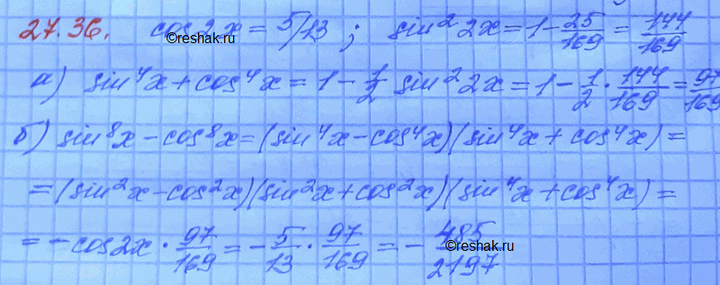 27.36. cos2x = 5/13 ; sin² 2x = 1 - 25/169 = 144/169
©reshak.ru
а) sin⁴x + cos⁴x = 1 - 1/2 sin² 2x = 1 - 1/2 · 144/169 = 97/169
б) sin⁸x - cos⁸x = (sin⁴x - cos⁴x)(sin⁴x + cos⁴x) =
= (sin²x - cos²x)(sin²x + cos²x)(sin⁴x + cos⁴x) =
= - cos2x · 97/169 = - 5/13 · 97/169 = - 485/2197
©reshak.ru